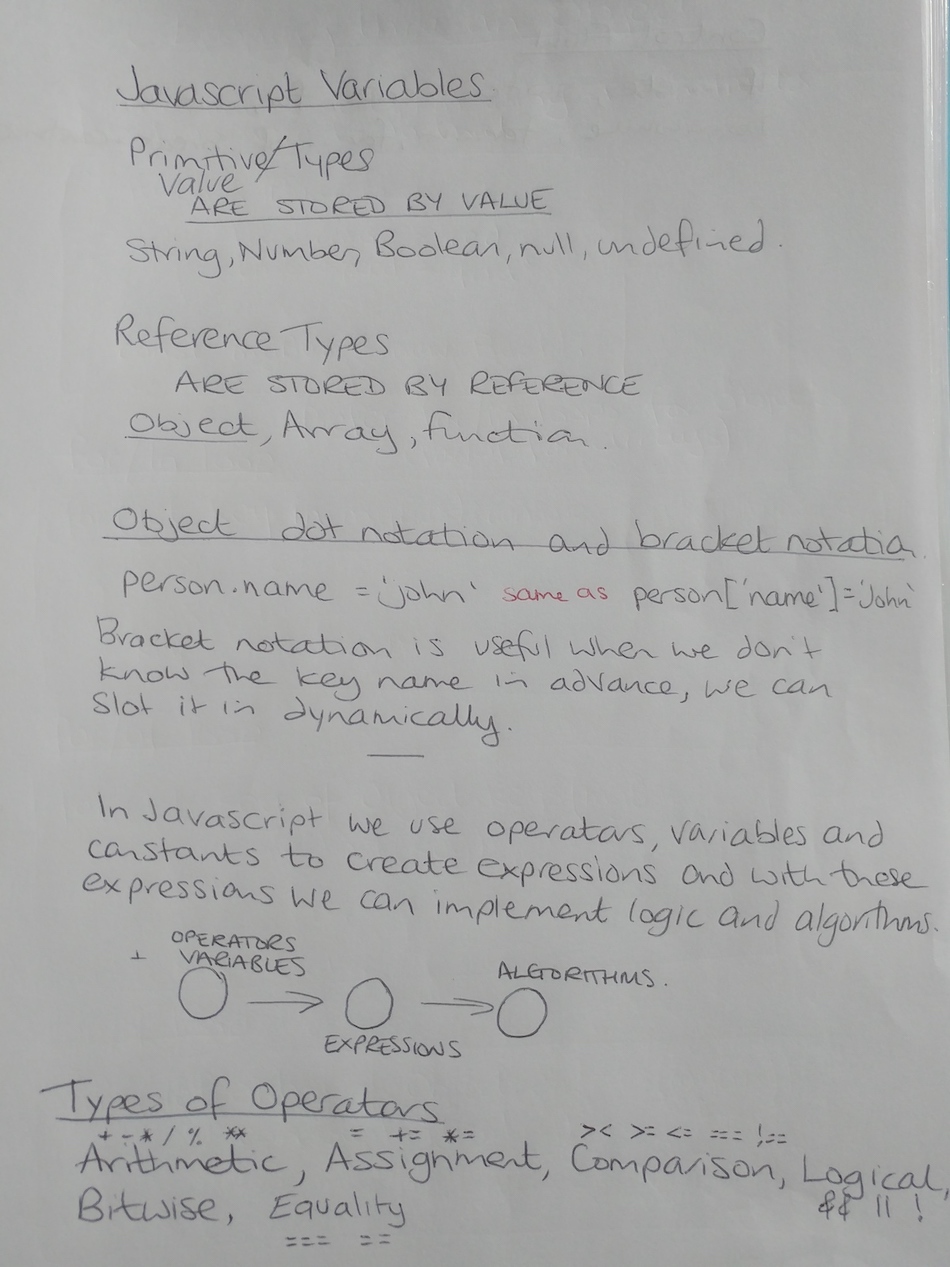 Javascript Variables
Primitive/Types
Value
ARE STORED BY VALUE
String, Number, Boolean, null, undefined.
Reference Types
ARE STORED BY REFERENCE
Object, Array, function.
Object dot notation and bracket notatio.
person.name = 'john' same as person['name']='John'
Bracket notation is useful when we don't
know the key name in advance, we can
Slot it in dynamically.
In Javascript we use operators, variables and
constants to create expressions and with these
expressions we can implement logic and algorithms.
OPERATORS
+ VARIABLES
ALGORITHMS.
EXPRESSIONS
Types of Operators
+ - * / % ** = += *= > < >= <= === !==
Arithmetic, Assignment, Comparison, Logical,
Bitwise, Equality && || !
=== ==